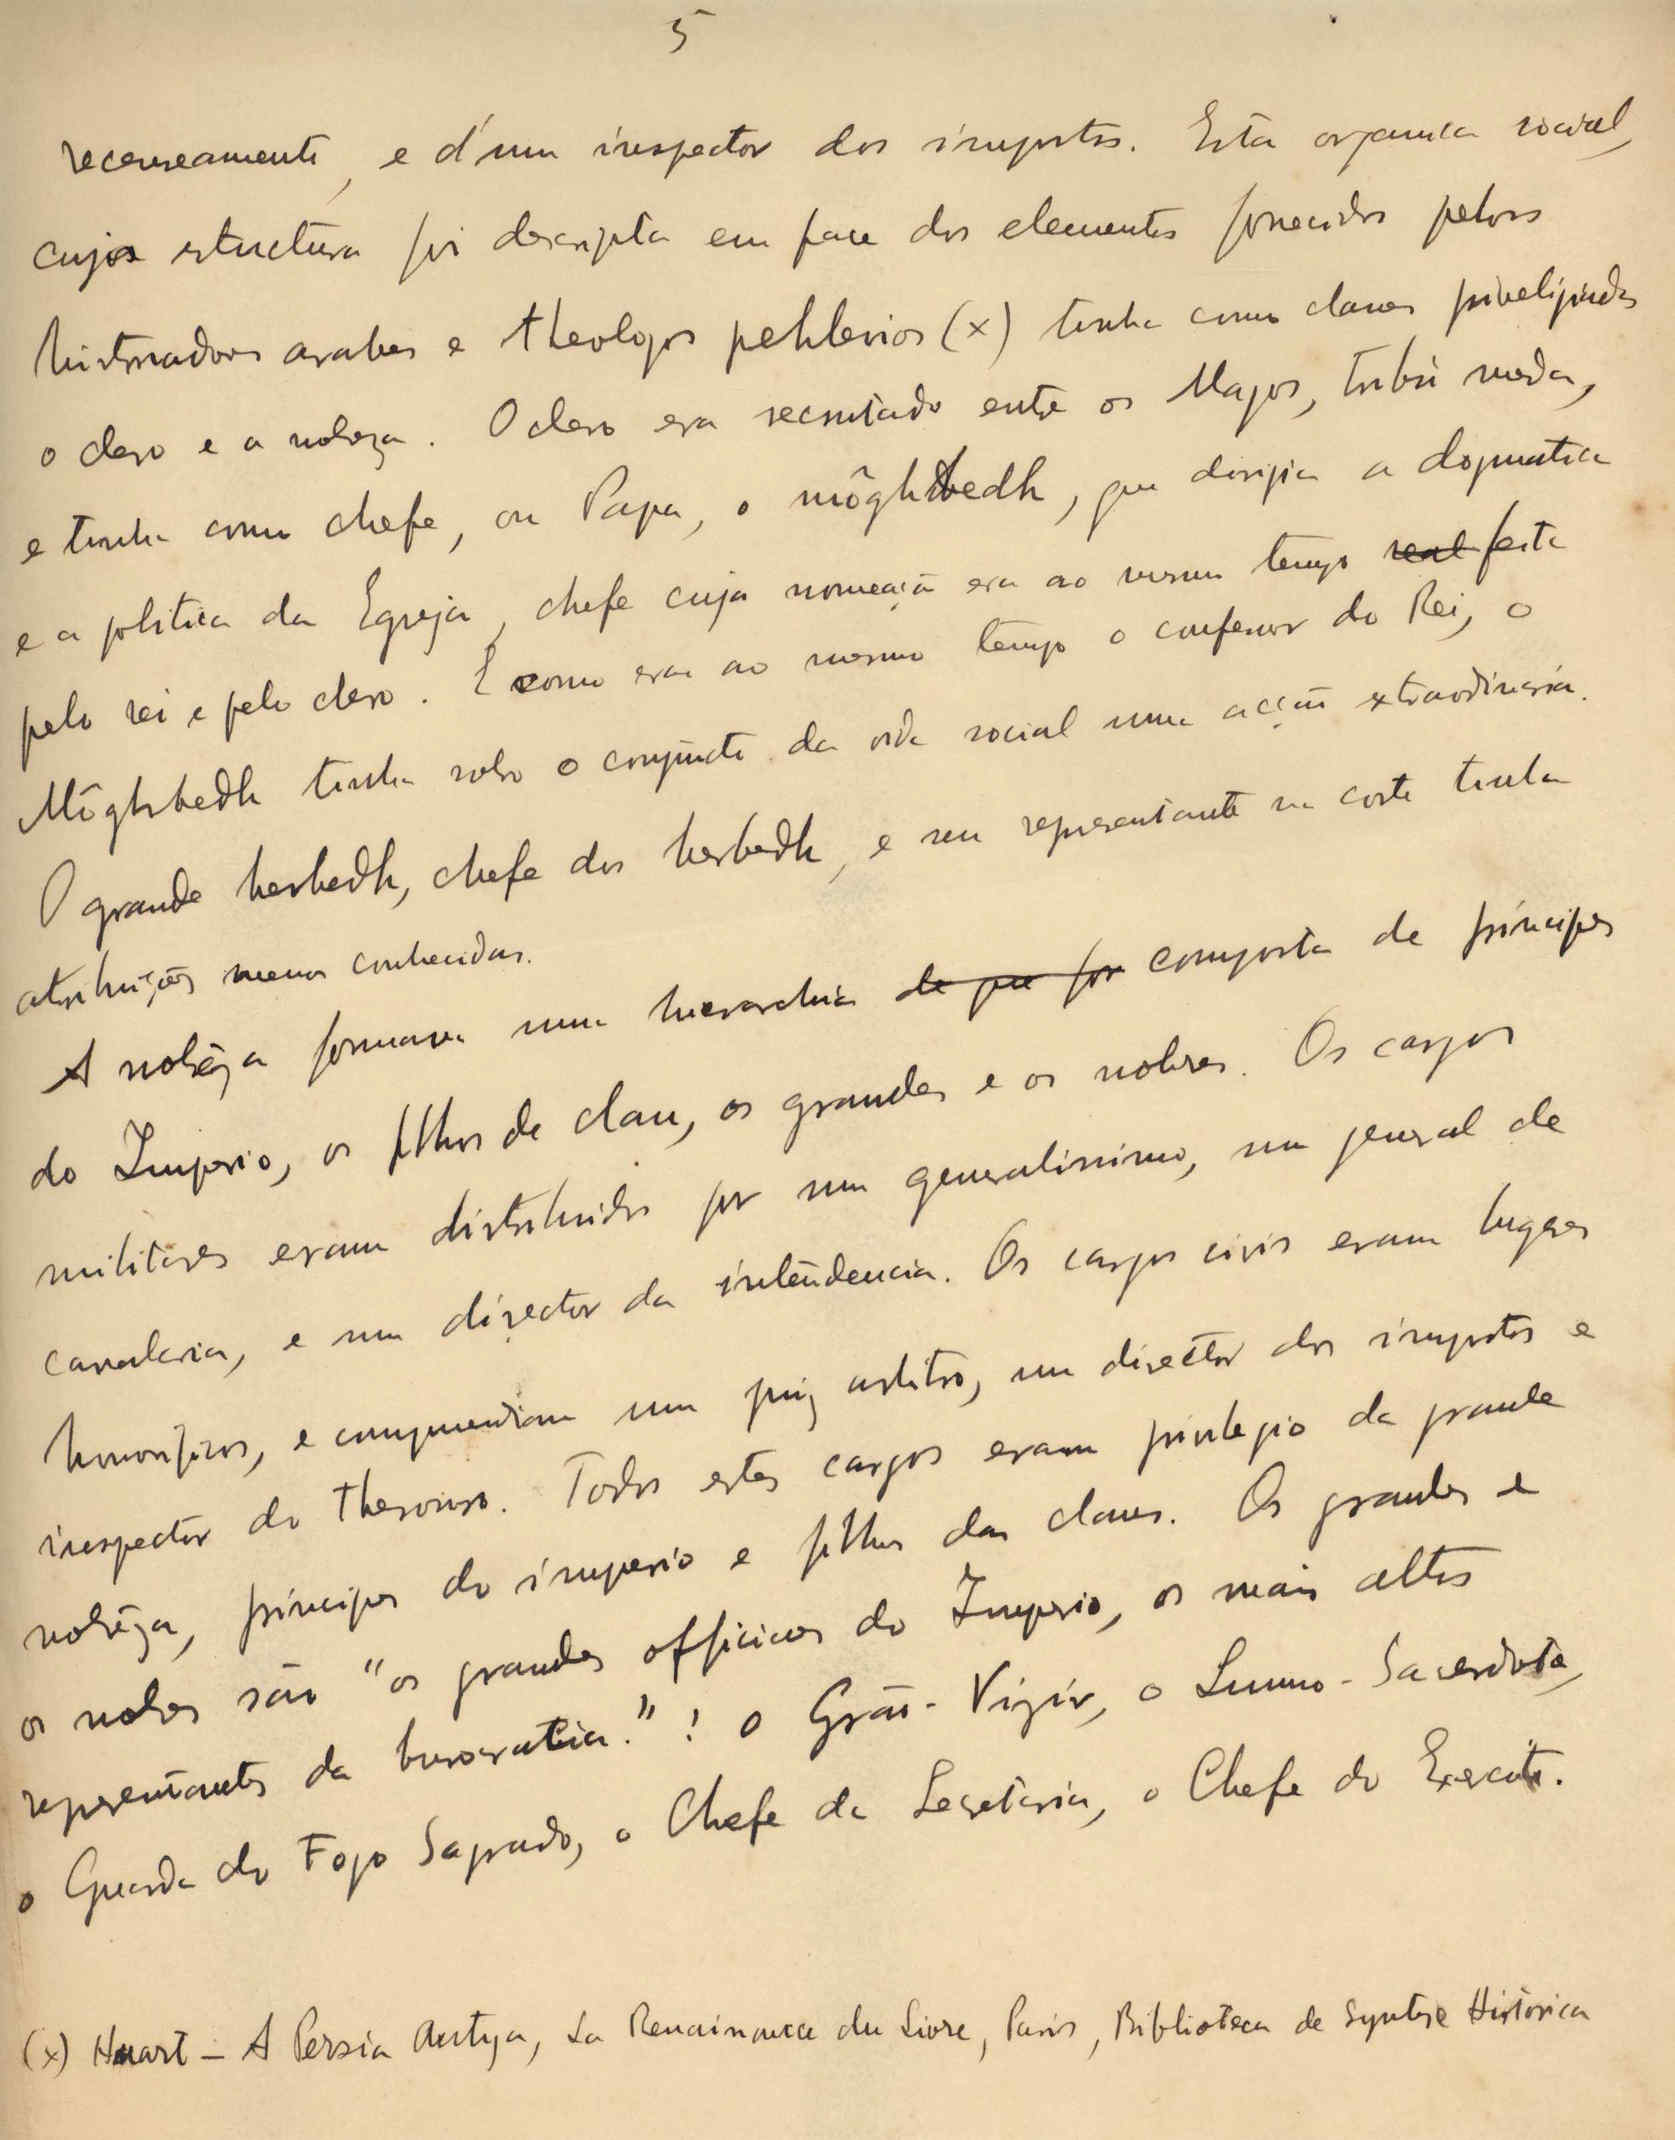 5
recenseamento, e d'um inspector dos impostos. Esta organica social,
cuja estructura foi descripta em face dos elementos fornecidos pelos
historiadores arabes e theologos pehlevios (x) tinha como classes priveligiadas
o clero e a nobreza. O clero era recrutado entre os Magos, tribú meda,
e tinha como chefe, ou Papa, o môghbedh, que dirigia a dogmatica
e a politica da Egreja, chefe cuja nomeação era ao mesmo tempo real feita
pelo rei e pelo clero. E como era ao mesmo tempo o confessor do Rei, o
Môghbedh tinha sobre o conjuncto da vida social uma acção extraordinaria.
O grande herbedh, chefe dos herbedh, e seu representante na corte tinha
atribuições menos conhecidas.
A nobrêza formava uma hierarchia de que for composta de principes
do Imperio, os filhos de clan, os grandes e os nobres. Os cargos
militares eram distribuidos por um generalissimo, um general de
cavalaria, e um director da intendencia. Os cargos civis eram lugares
honorificos, e comprendiam um juiz arbitro, um director dos impostos e
inspector do thesouro. Todos estes cargos eram privilegio da grande
nobrêza, principes do imperio e filhos dos clanes. Os grandes e
os nobres são "os grandes officiaes do Imperio, os mais altos
representantes da burocratia." : o Grão-Vizir, o Summo-Sacerdote,
o Guarda do Fogo Sagrado, o Chefe da Secretaria, o Chefe do Exercito.
(x) Huart – A Persia Antiga, La Renaissance du Livre, Paris, Biblioteca de Syntese Historica